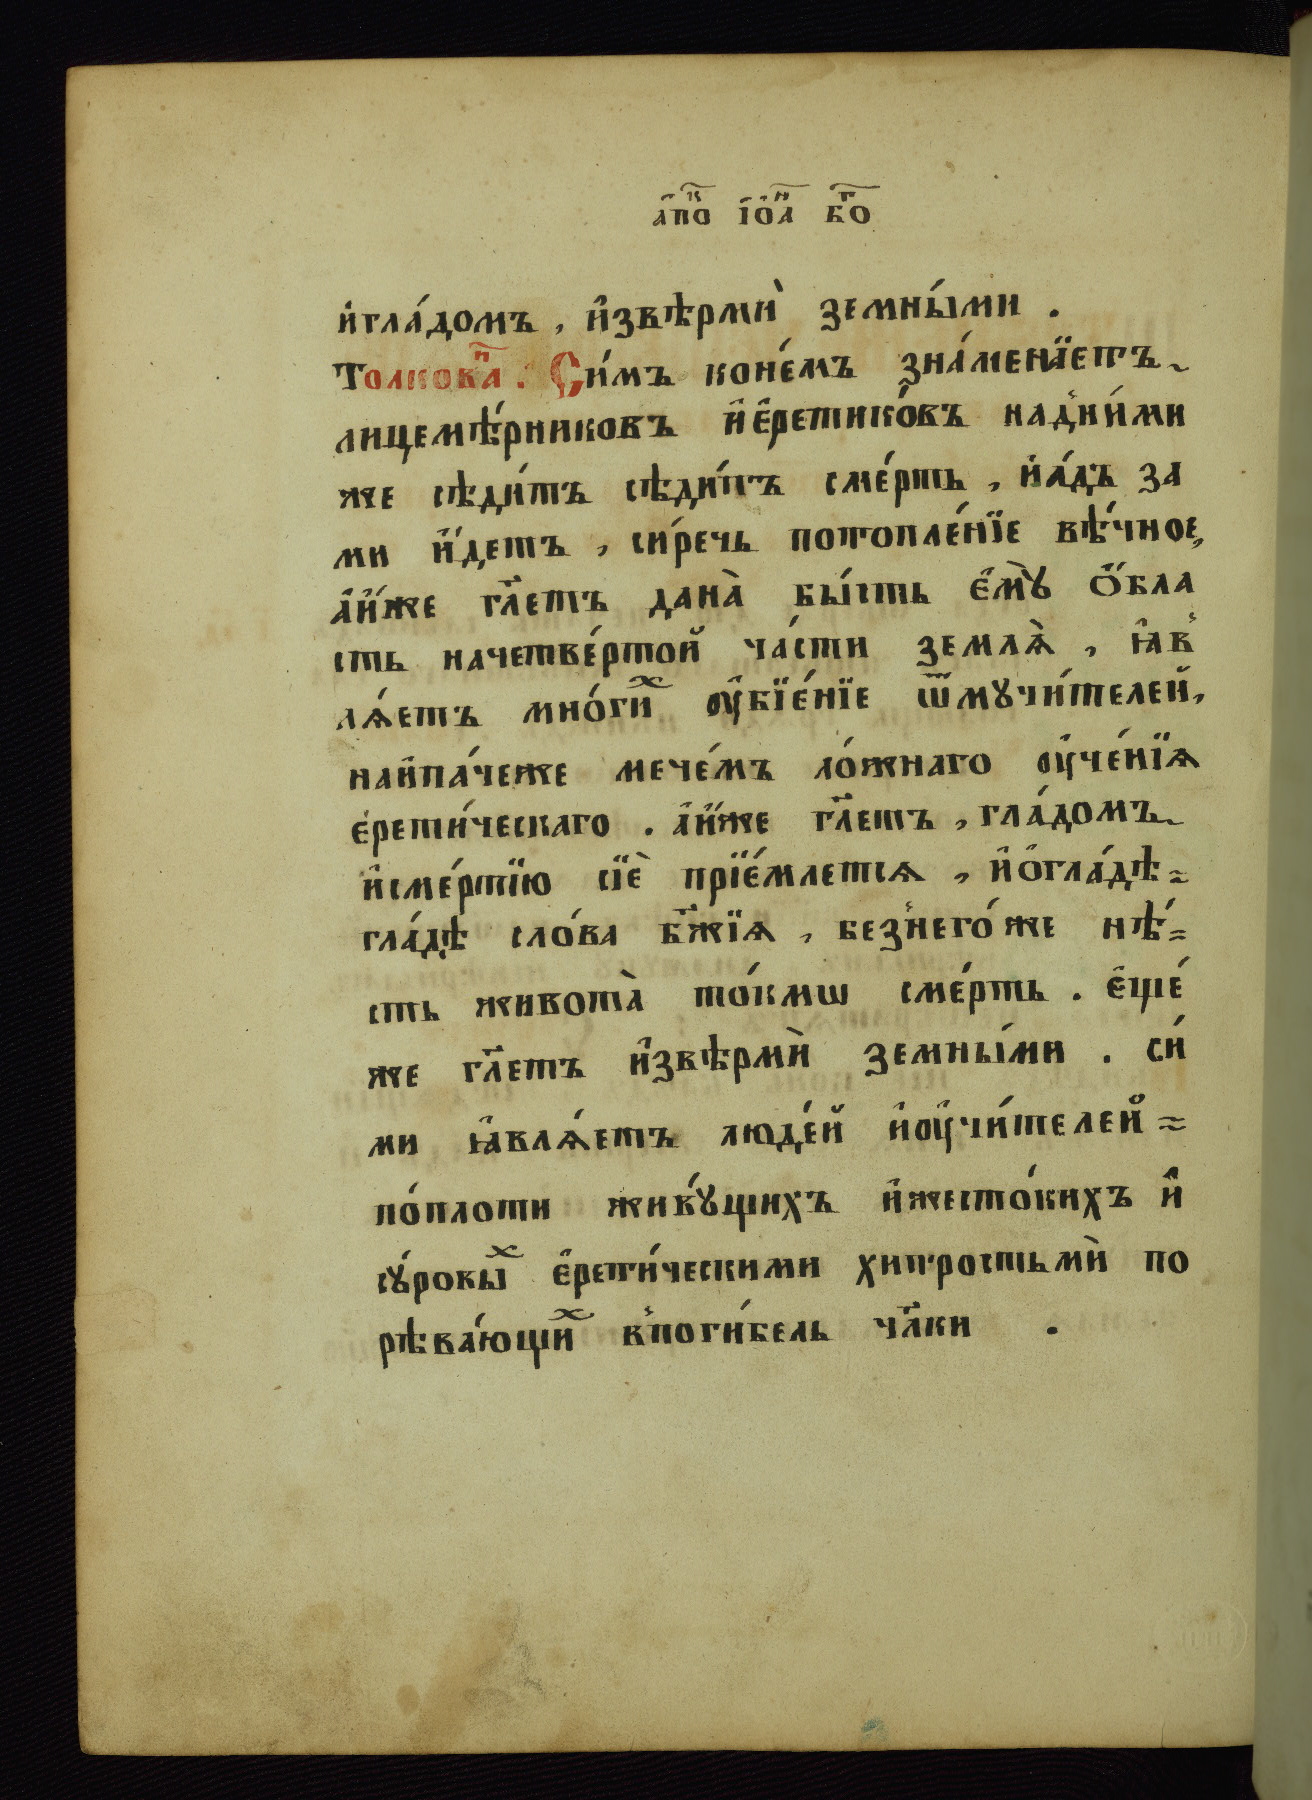 а҆по҃к і҆оа҃н бг҃о
и҆гла́домъ , и҆ѕвѣрми̑ земны́ми .
Толкова҃н . Си́мъ коне́мъ зна́менꙋетъ
лицемѣ́рниковъ и҆є҆ретико́въ надни́ми
же сѣди́тъ сѣди́тъ сме́рть , и҆а́дъ за
ми и҆́детъ , си́речь потопле́нїе вѣ́чное,
а҆и҆́же гл҃етъ дана̀ бы́сть є҆мꙋ̀ ѻ҆́бла
сть начетве́ртой ча́сти землѧ̀ , ꙗ҆в
лѧ́етъ мно́гих ᲂу҆бїе́нїе ѿмꙋчи́телей,
наи҆па́чеже мече́мъ ло́жнаго ᲂу҆че́нїѧ
є҆рети́ческаго . а҆и҆́же гл҃етъ , гла́домъ
и҆сме́ртїю сїѐ прїе́млетсѧ , и҆ѻ҆гла́дѣ=
гла́дѣ сло́ва бж҃їѧ , безнего́же нѣ́=
сть живота̀ то́кмѡ сме́рть . є҆ще́
же гл҃етъ и҆звѣрмѝ земны́ми . си́
ми ꙗ҆влѧ́етъ люде́й и҆ᲂу҆чи́телей=
по́плоти живꙋ́щихъ и҆жесто́кихъ и҆
сꙋ́ровых є҆рети́ческими хитростьмѝ по
рѣва́ющих впоги́бель чл҃ки .